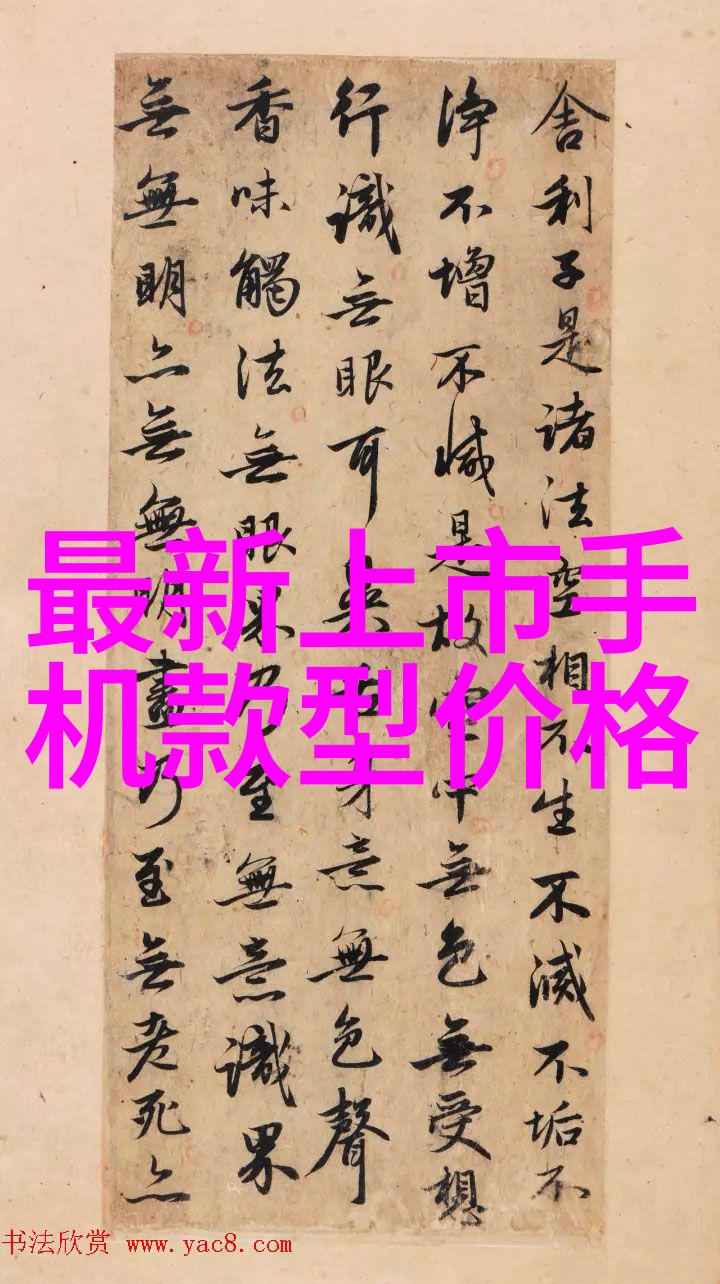 舍利子是諸法空相不生不滅不垢不
淨不增不減是故空中無色無受想
行識無眼耳鼻舌身意無色聲
香味觸法無眼界乃至無意識界
無無明亦無無明盡乃至無老死亦
最新上市手
机款型价格
书法欣赏 www.yac8.com